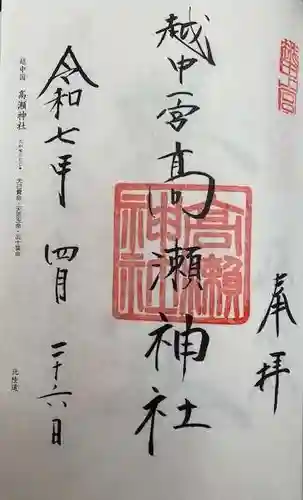 奉拝
越中一宮髙瀬神社
髙瀬神社
令和七年 四月 二十六日
越中国 高瀬神社
北陸道